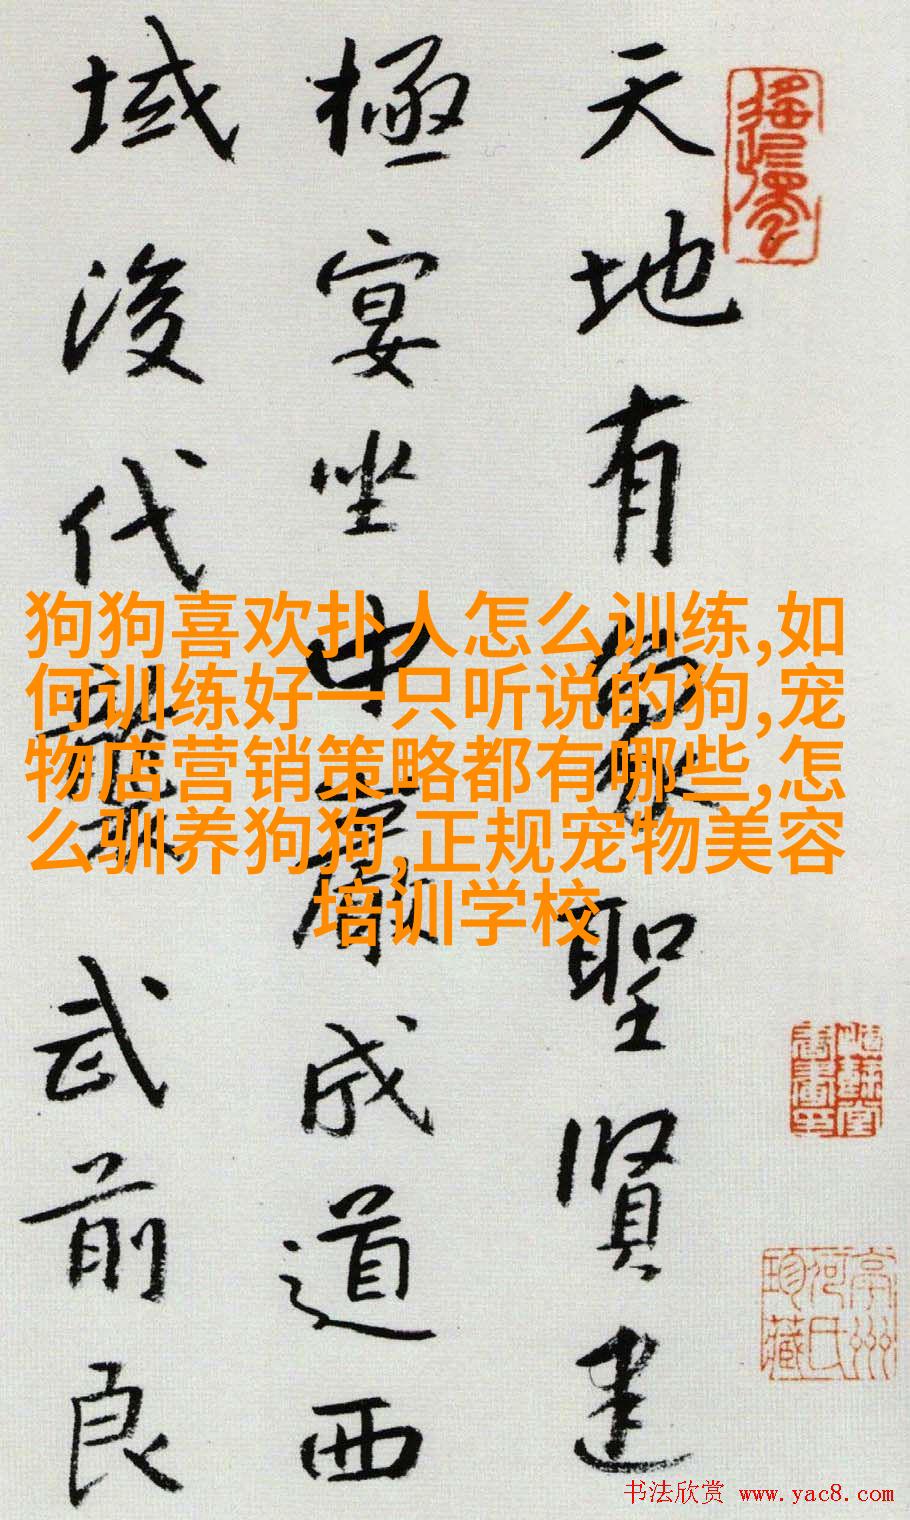 天地有象聖賢建
極宴坐中嚴成道西
域後代襲武前良
狗狗喜欢扑人怎么训练,如
何训练好一只听说的狗,宠
物店营销策略都有哪些,怎
么驯养狗狗,正规宠物美容
培训学校
亭州
河氏
珍藏
书法欣赏 www.yac8.com